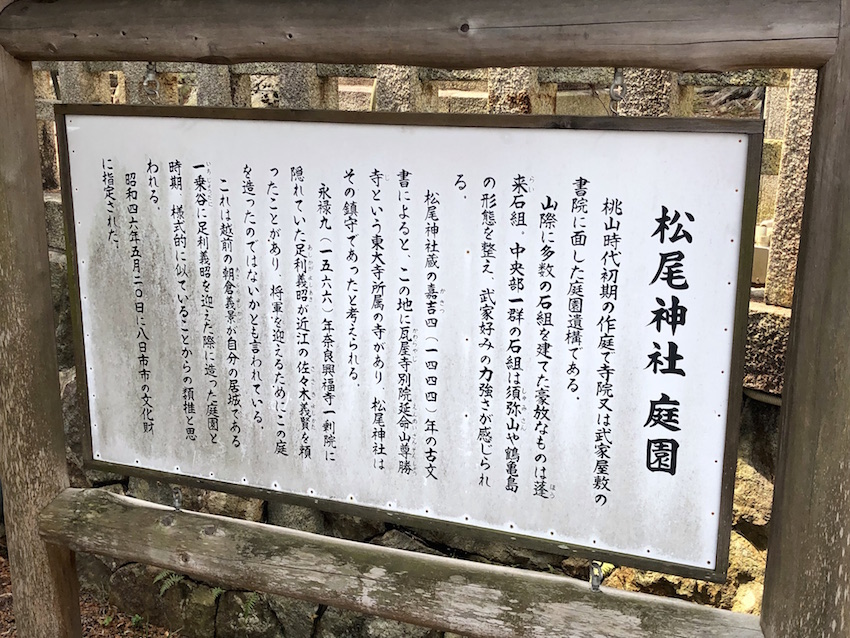 松尾神社 庭園
桃山時代初期の作庭で寺院又は武家屋敷の
書院に面した庭園遺構である。
山際に多数の石組を建てた豪放なものは蓬
来石組。中央部一群の石組は須弥山や鶴亀島
の形態を整え、武家好みの力強さが感じられ
る。
松尾神社蔵の嘉吉四（一四四四）年の古文
書によると、この地に瓦屋寺別院延命山尊勝
寺という東大寺所属の寺があり、松尾神社は
その鎮守であったと考えられる。
永禄九（一五六六）年奈良興福寺一剰院に
隠れていた足利義昭が近江の佐々木義賢を頼
ったことがあり、将軍を迎えるためにこの庭
を造ったのではないかとも言われている。
これは越前の朝倉義景が自分の居城である
一乗谷に足利義昭を迎えた際に造った庭園と
時期、様式的に似ていることからの類推と思
われる。
昭和四六年五月二〇日に八日市市の文化財
に指定された。